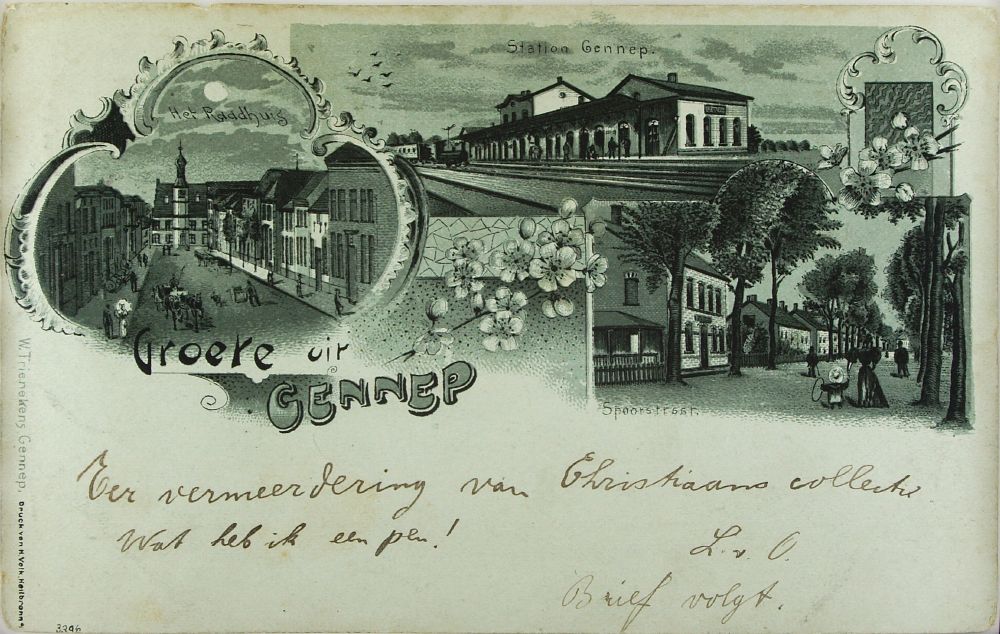 Station Gennep.
Het Raadhuis
Groete uit
GENNEP
Spoorstraat.
Ter vermeerdering van Christiaans collectie
Wat heb ik een pen!
L. v. O.
Brief volgt.
W. Trienekens Gennep. Druck von H. Volk, Heilbronn a/